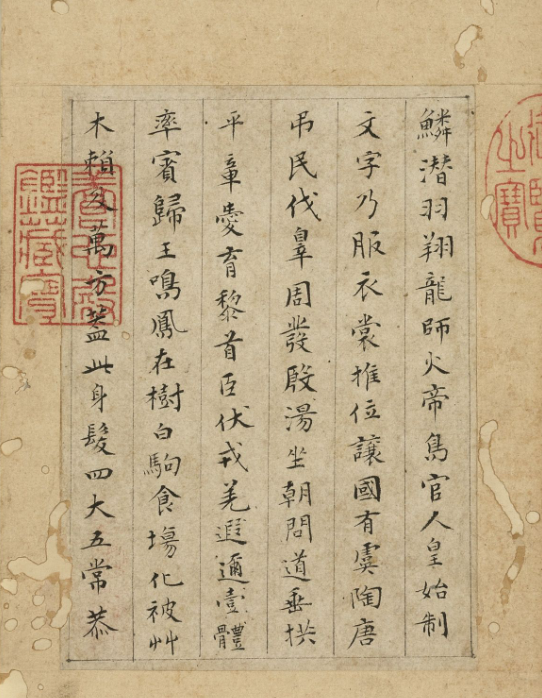 鱗潛羽翔龍師火帝鳥官人皇始制
文字乃服衣裳推位讓國有虞陶唐
弔民伐辠周發殷湯坐朝問道垂拱
平章愛育黎首臣伏戎羌遐邇壹體
率賓歸王鳴鳳在樹白駒食塲化被艸
木賴及萬方蓋此身髮四大五常恭
養心殿
鑑藏寶
之寶